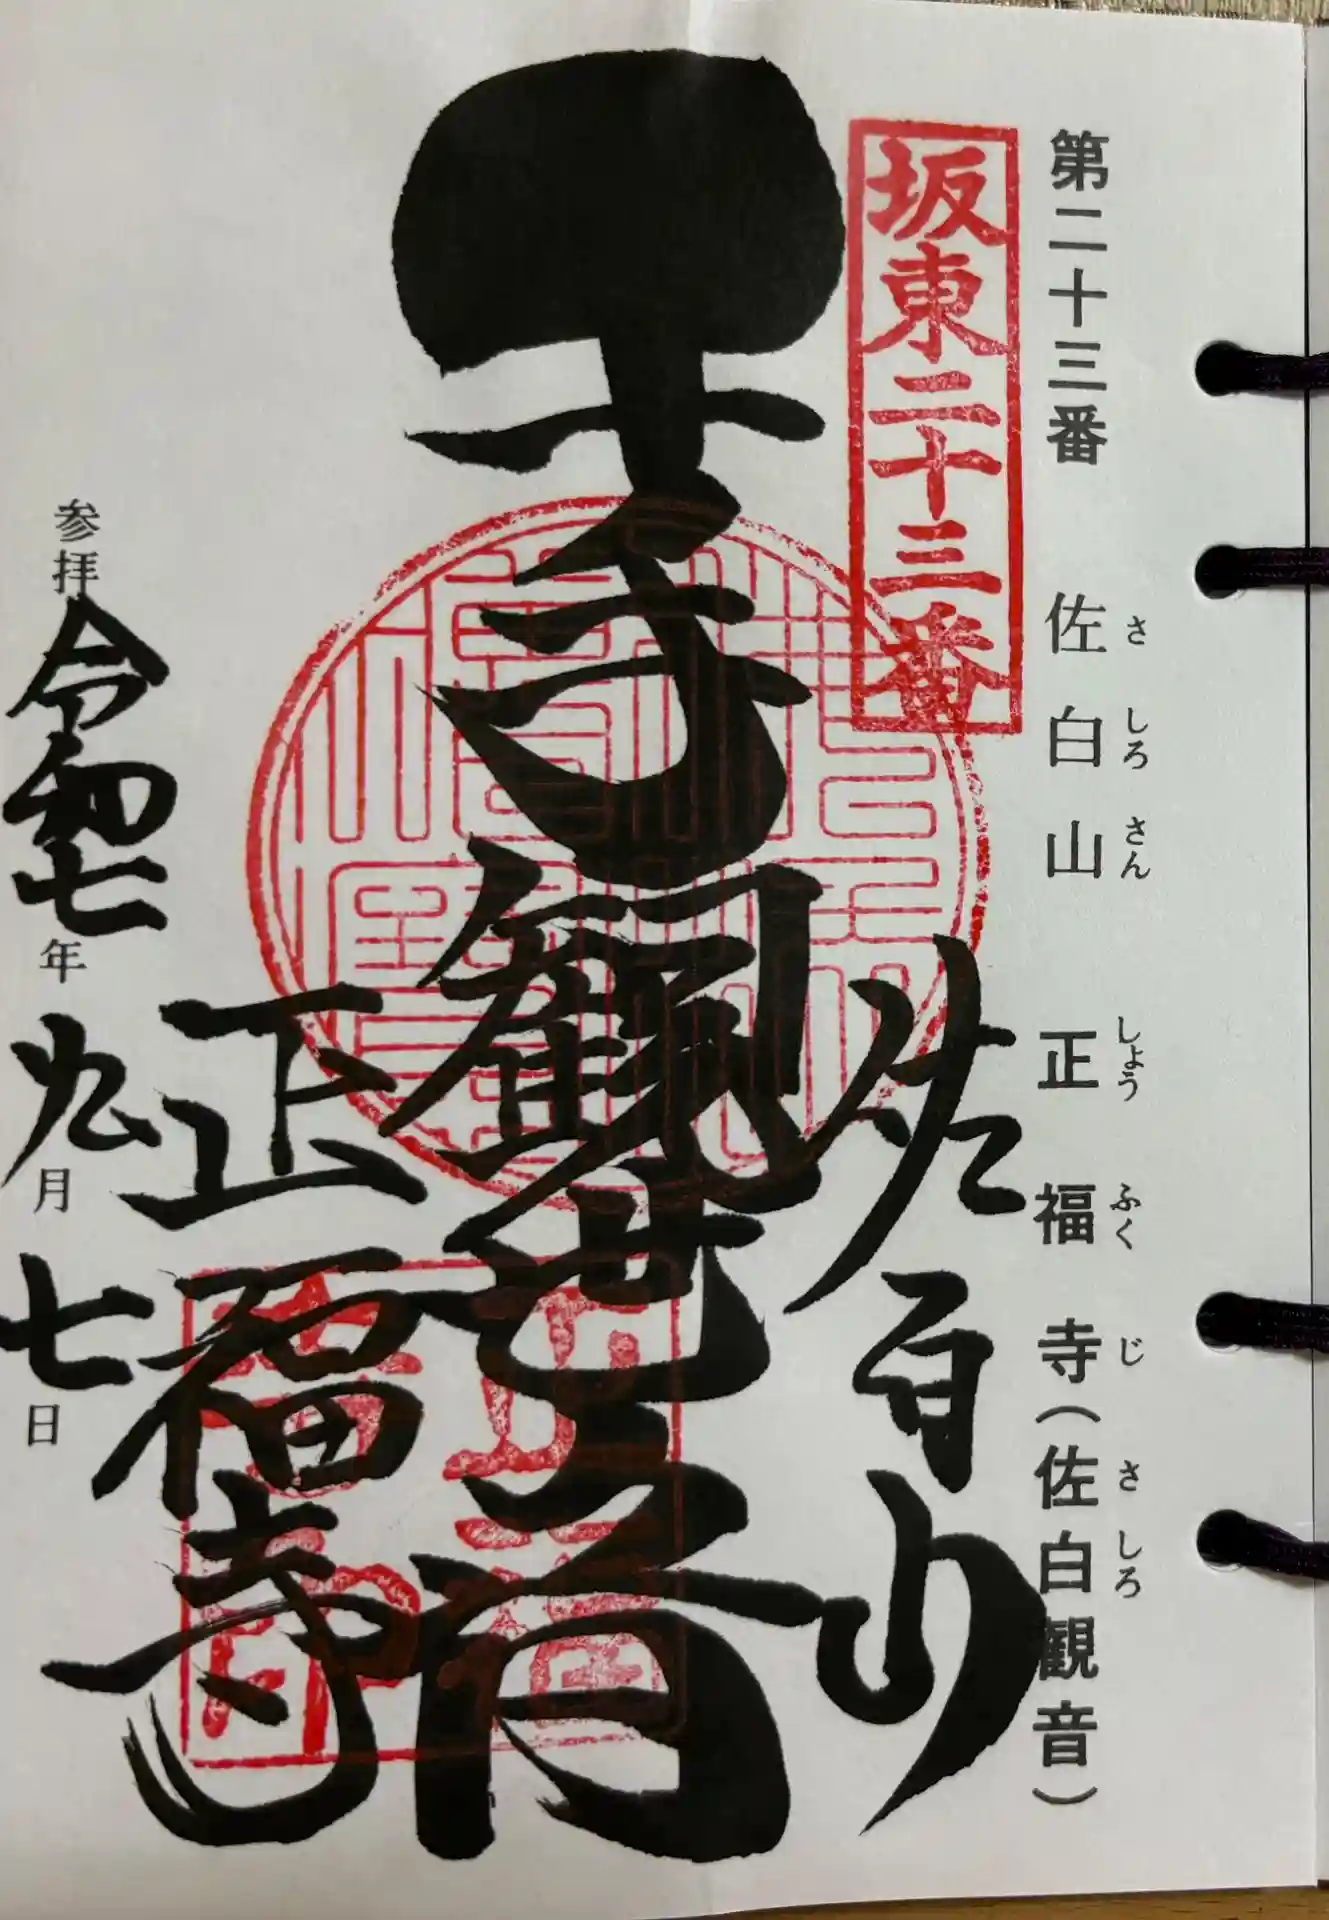 第二十三番 佐白山 正福寺（佐白観音）
さ しろ さん しょう ふく じ さ しろ
坂東二十三番
佐白山
千手観世音
正福寺
参拝 令和七年九月七日